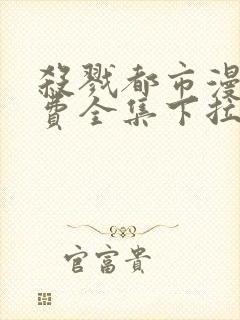 殺戮都市漫
費全集下拉
官富貴